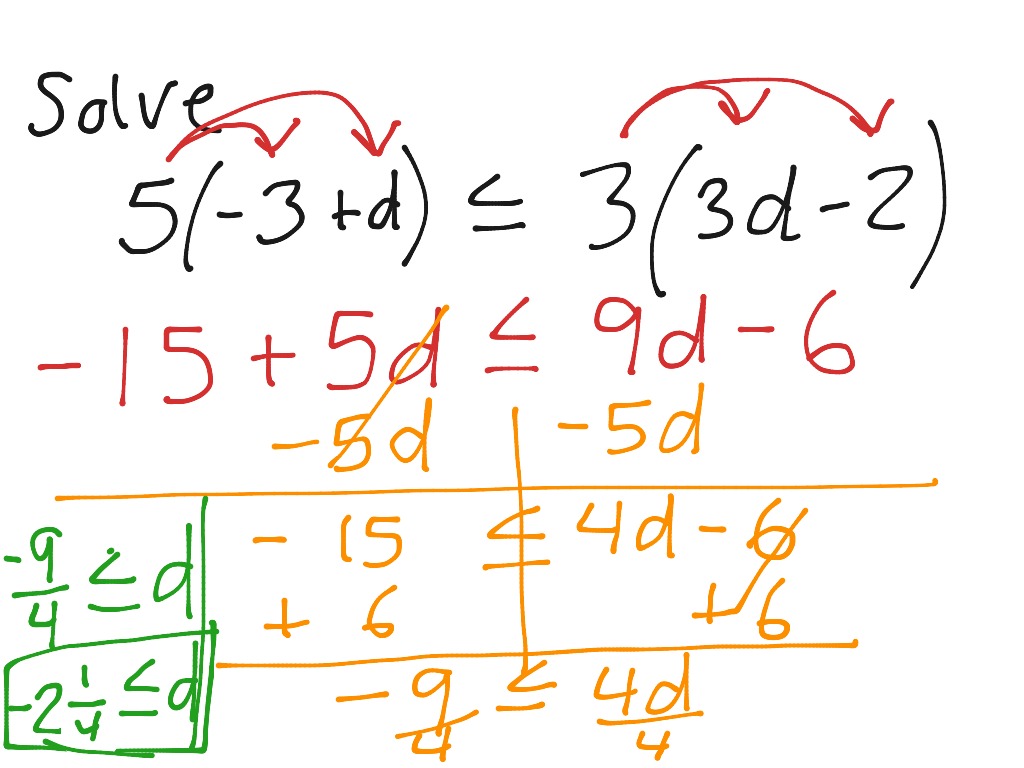 Solve
5(-3+d) ≤ 3(3d-2)
-15 + 5d ≤ 9d - 6
-5d -5d
-15 ≤ 4d - 6
+ 6 + 6
-9/4 ≤ 4d/4
-9/4 ≤ d
-2 1/4 ≤ d